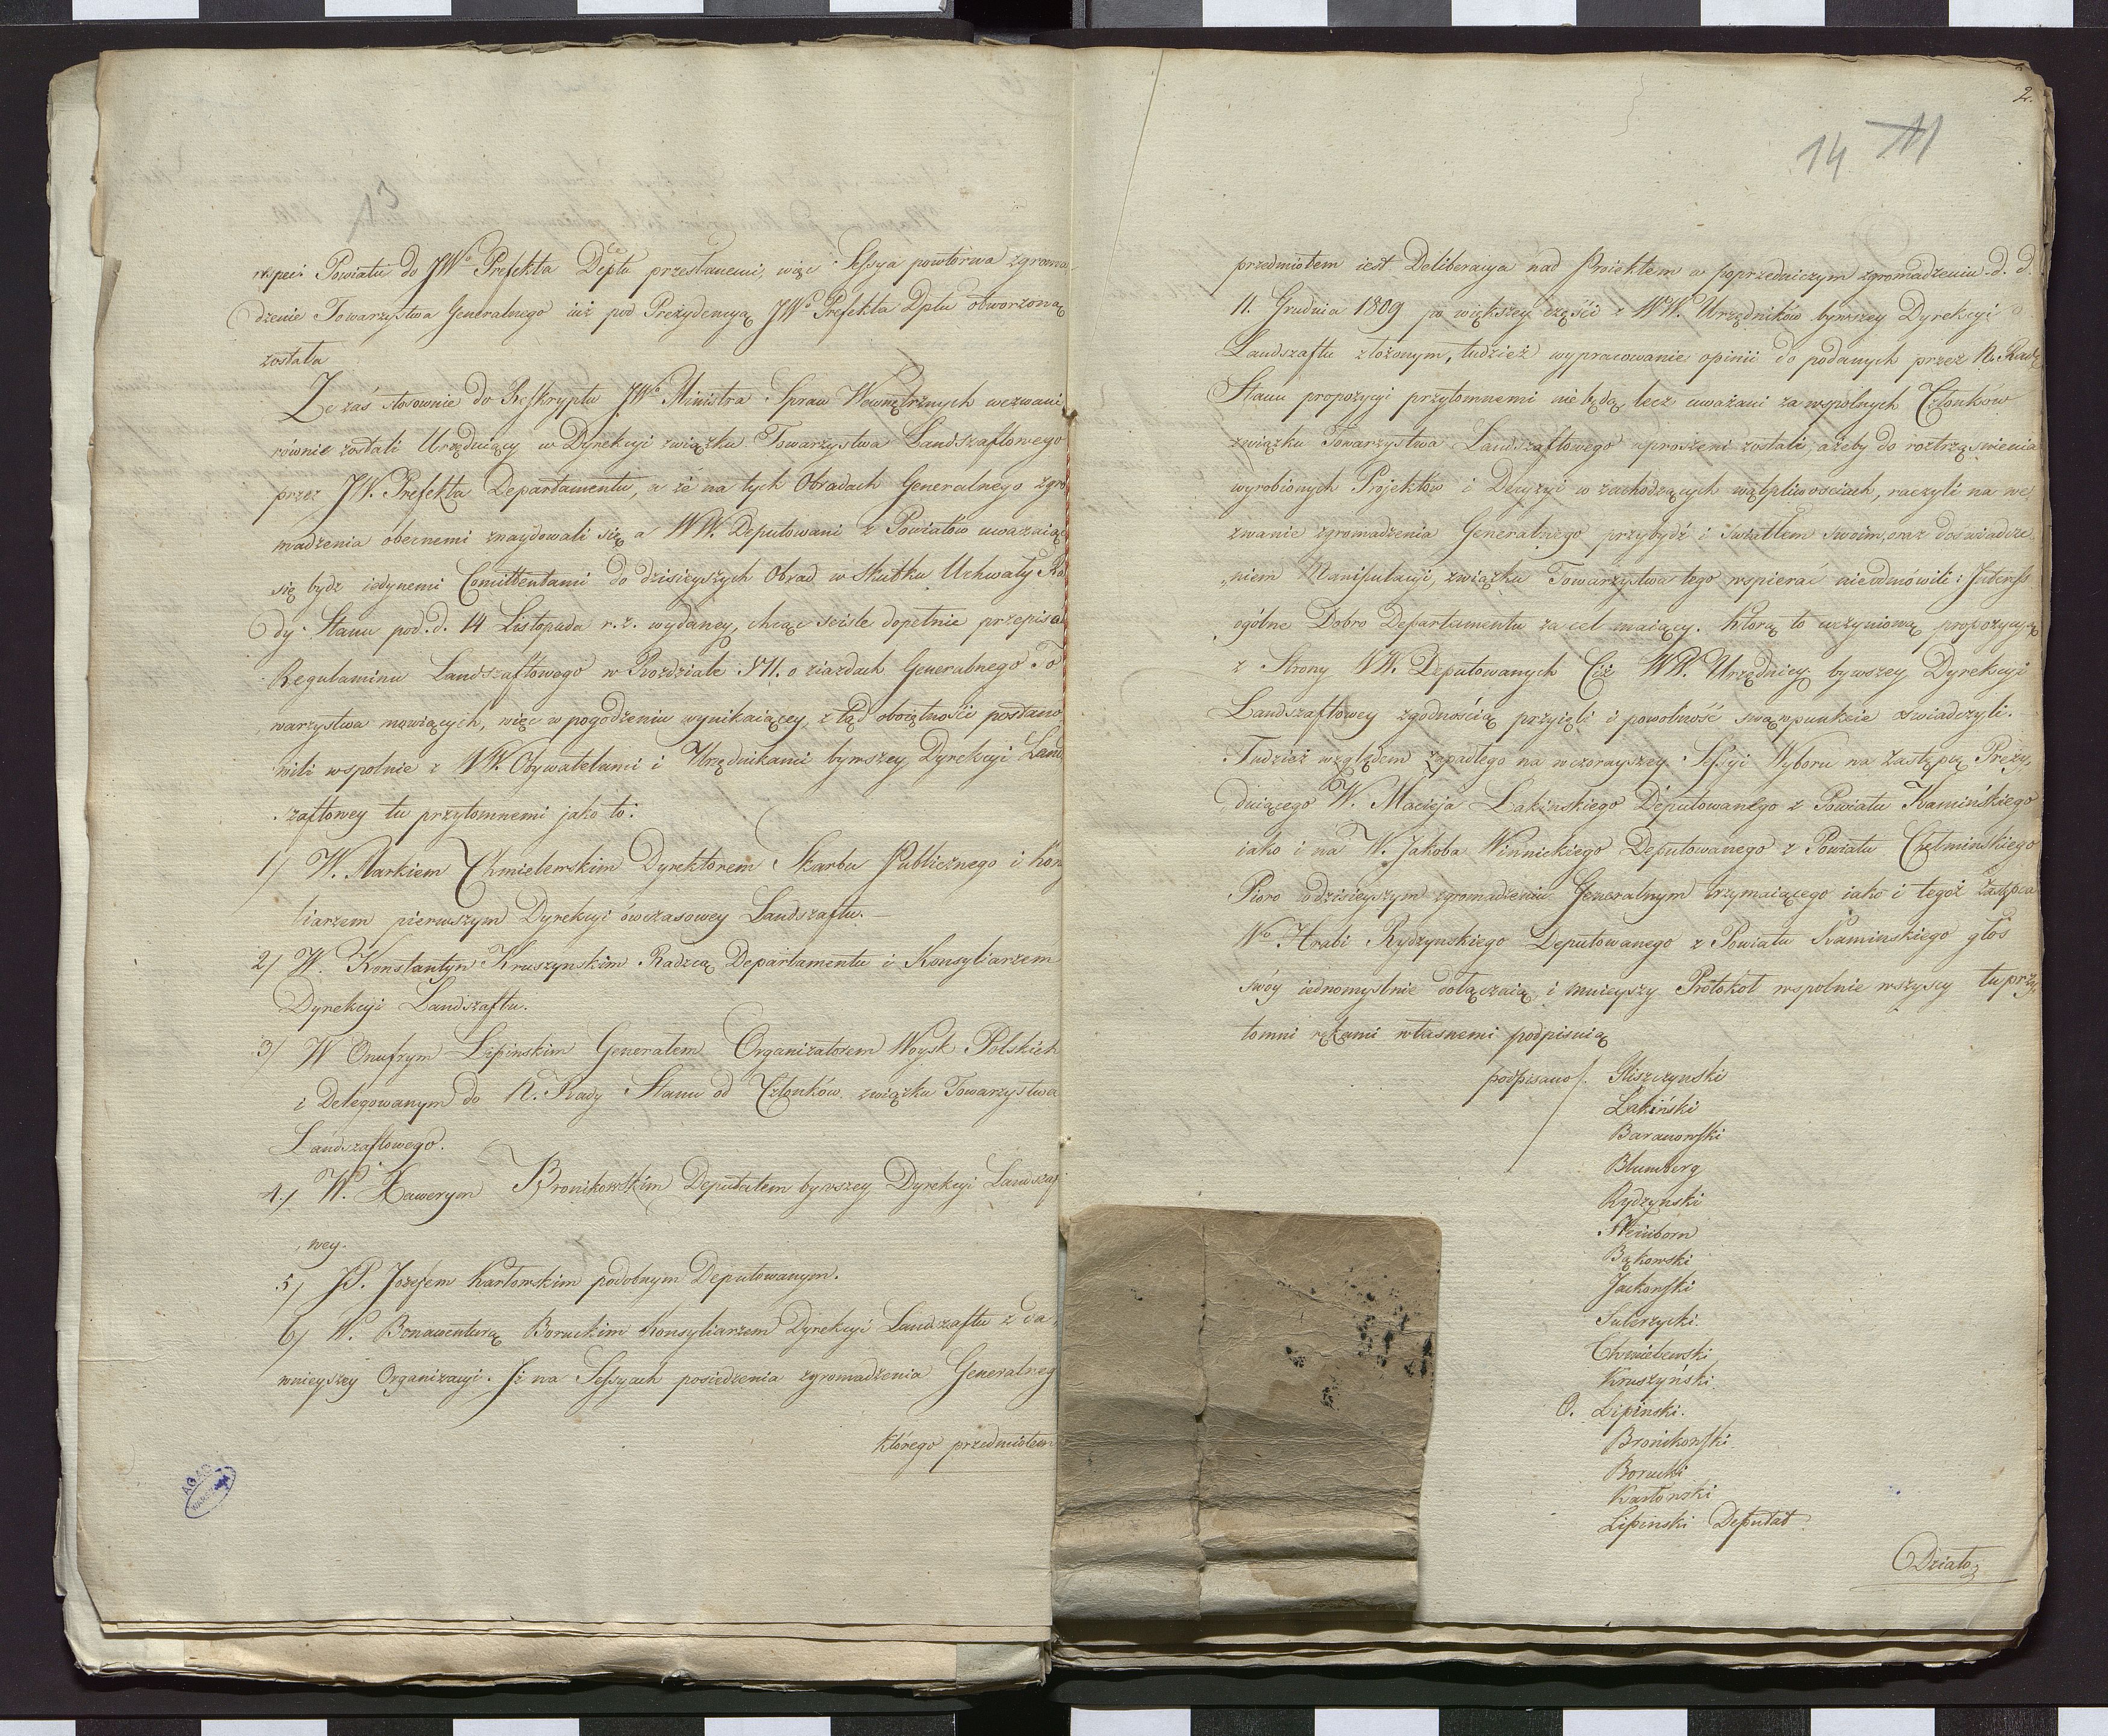 13
respei: Powiatu do JWo Prefekta Deptu przesłanemi, więc Sessya powtórna zgroma
dzenie Towarzystwa Generalnego iuż pod Prezydencyą JWo Prefekta Dptu otworzoną
została
Ze zaś stosownie do Reskryptu JWo Ministra Spraw Wewnętrznych wezwani
równie zostali Urzęduiący w Dyrekcyi związku Towarzystwa Landszaftowego
przez JW. Prefekta Departamentu, a że na tych Obradach Generalnego zgro
madzenia obecnemi znaydowali się, a WW. Deputowani z Powiatów uważaiąc
się bydz iedynemi Comittentami do dzisieyszych Obrad w skutku Uchwały Ra
dy Stanu pod. d. 14 Listopada r. z. wydaney, chcąc ściśle dopełnić przepisa
Regulaminu Landszaftowego w Rozdziale VII. o ziazdach Generalnego To
warzystwa mówiących, więc w pogodzeniu wynikaiącey z tąd oboiętności postano
wili wspolnie z WW. Obywatelami i Urzędnikami bywszey Dyrekcyi Land
szaftowey tu przytomnemi jako to:
1) W. Markiem Chmielewskim Dyrektorem Skarbu Publicznego i kon
liarzem pierwszym Dyrekcyi ówczasowey Landszaftu.
2) W. Konstantyn Kruszynskim Radzcą Departamentu i Konsyliarzem
Dyrekcyi Landszaftu.
3) W Onufrym Lipinskim Generałem Organizatorem Woysk Polskich
i Delegowanym do N. Rady Stanu od Członków związku Towarzystwa
Landszaftowego.
4.) W. Xawerym Bronikowskim Deputatem bywszey Dyrekcyi Landszaf
wey.
5) JP. Jozefem Karłowskim podobnym Deputowanym.
6) W. Bonawenturą Boruckim Konsyliarzem Dyrekcyi Landszaftu z da
wnieyszey Organizacyi. Iż na Sessyach posiedzenia zgromadzenia Generalneg
którego przedmiotem
AGAD
WARSZAWA
2.
14 11
przedmiotem iest Deliberacya nad Proiektem w poprzedniczym zgromadzeniu d. d.
11. Grudnia 1809 po większey części z WW. Urzędników bywszey Dyrekcyi
Landszaftu złożonym, tudzież wypracowanie opinii do podanych przez N. Radę
Stanu propozycyi przytomnemi nie będą, lecz uważani za wspolnych Członków
związku Towarzystwa Landszaftowego uproszeni zostali, ażeby do roztrząśnienia
wyrobionych Projektów i Decyzyi w zachodzących wątpliwościach, raczyli na we
zwanie zgromadzenia Generalnego przybydź i światłem swoim, oraz doświadcze
niem Manipulacyi, związku Towarzystwa tego wspierać nieodmówili: Interess
ogólne Dobro Departamentu za cel maiący. Którą to uczynioną propozycyą
z Strony WW. Deputowanych Ciż WW. Urzędnicy bywszey Dyrekcyi
Landszaftowey zgodnością przyięli i powolność swą w punkcie oświadczyli.
Tudzież względem zapadłego na wczorayszey Sessyi Wyboru na Zastępcą Prezy,
duiącego W. Macieja Łakinskiego Deputowanego z Powiatu Kamińskiego
iako i na W. Jakoba Winnickiego Deputowanego z Powiatu Chełminskiego
Pioro w dzisieyszym zgromadzeniu Generalnym trzymaiącego iako i tegoż zastępca
Wo Hrabi Rydzynskiego Deputowanego z Powiatu Kaminskiego głos
swóy iednomyslnie dołączaią, i ninieyszy Protokoł wspolnie wszyscy tu przy
tomni rękami własnemi podpisuią
podpisano/. Gliszczynski
Łakiński
Baranowski
Blumberg
Rydzynski
Bąkowski
Jackowski
Sulerzycki
Chmielewski
Kruszyński
O. Lipinski.
Bronikowski
Borucki
Karłowski
Lipinski Deputat
Działo